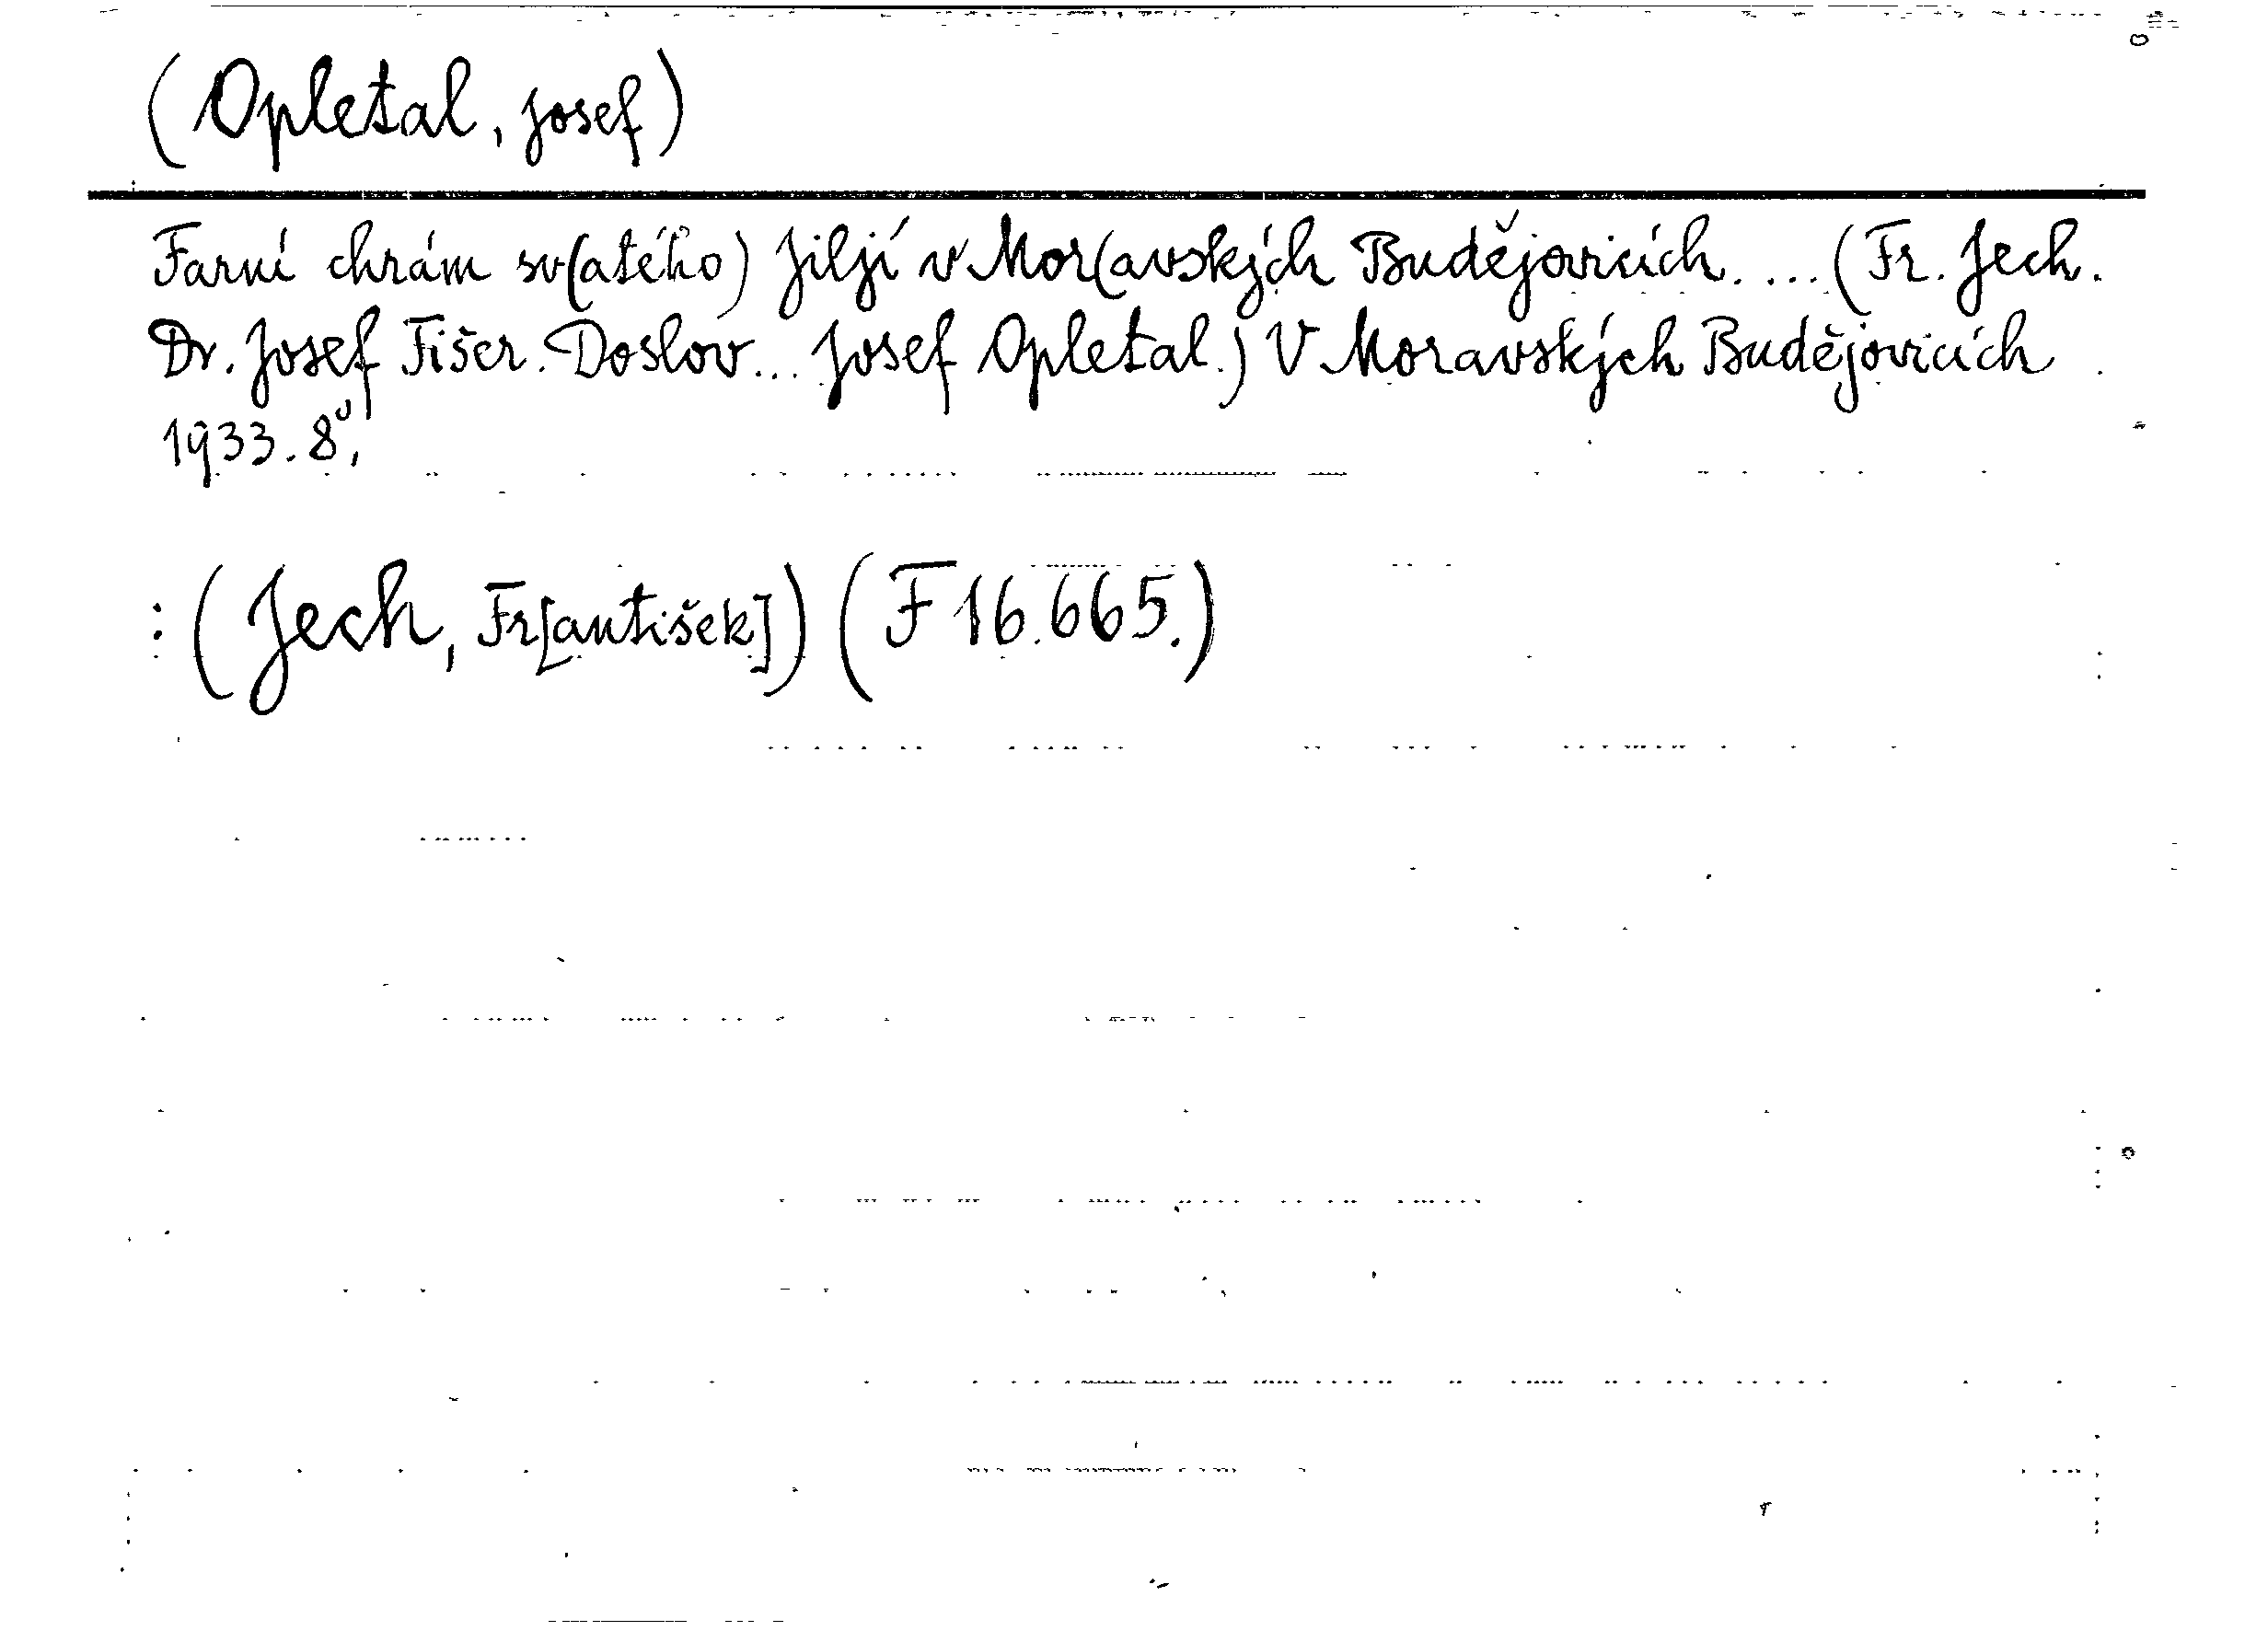 (Opletal, Josef)
Farní chrám sv(atého) Jiljí v Mor(avských Budějovicích. ... (Fr. Jech.
Dr. Josef Fišer. Doslov... Josef Opletal.) V Moravských Budějovicích
1933. 8°.
: (Jech, Fr[antišek]) (F 16.665.)